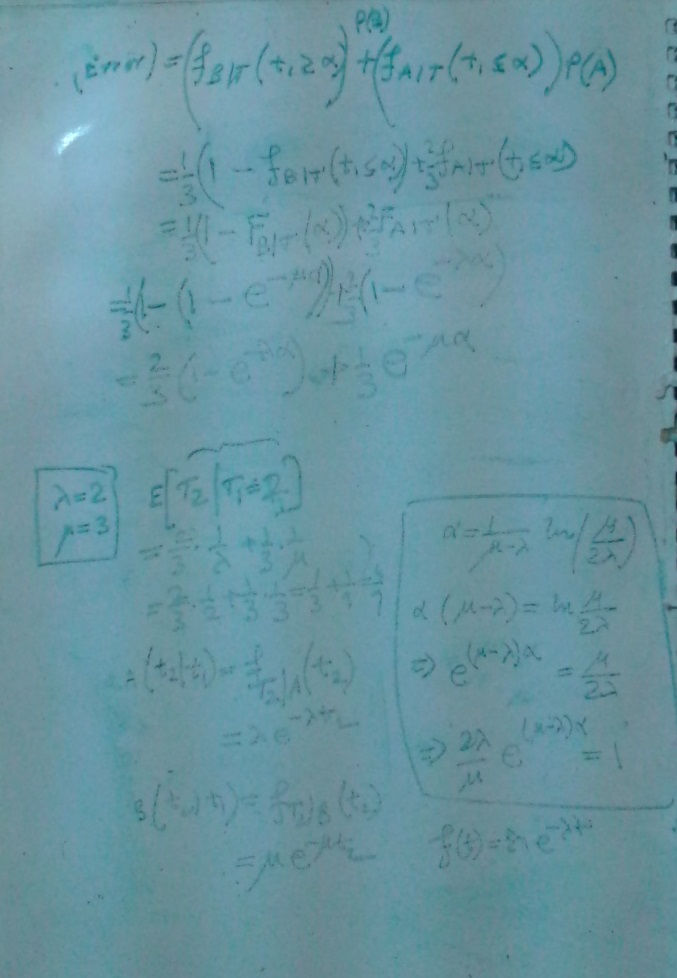 P(B)
(Error) = (f_{B|T}(t_1 ≥ α)) + (f_{A|T}(t_1 ≤ α)) P(A)
= 1/3 (1 - f_{B|T}(t_1 ≤ α)) + 2/3 f_{A|T}(t_1 ≤ α)
= 1/3 (1 - F_{B|T}(α)) + 2/3 F_{A|T}(α)
= 1/3 (1 - (1 - e^{-μα})) + 2/3 (1 - e^{-λα})
= 2/3 (1 - e^{-λα}) + 1/3 e^{-μα}
λ=2
μ=3
E[T_2 | T_1 = ]
= 2/3 · 1/λ + 1/3 · 1/μ
= 2/3 · 1/2 + 1/3 · 1/3 = 1/3 + 1/9 = 4/9
A(t_2|t_1) = f_{T_2|A}(t_2)
= λ e^{-λt_2}
B(t_2|t_1) = f_{T_2|B}(t_2)
= μ e^{-μt_2}
α = 1/(μ-λ) ln(μ/2λ)
α (μ-λ) = ln μ/2λ
⇒ e^{(μ-λ)α} = μ/2λ
⇒ 2λ/μ e^{(μ-λ)α} = 1
f(t) = e^{-λt}